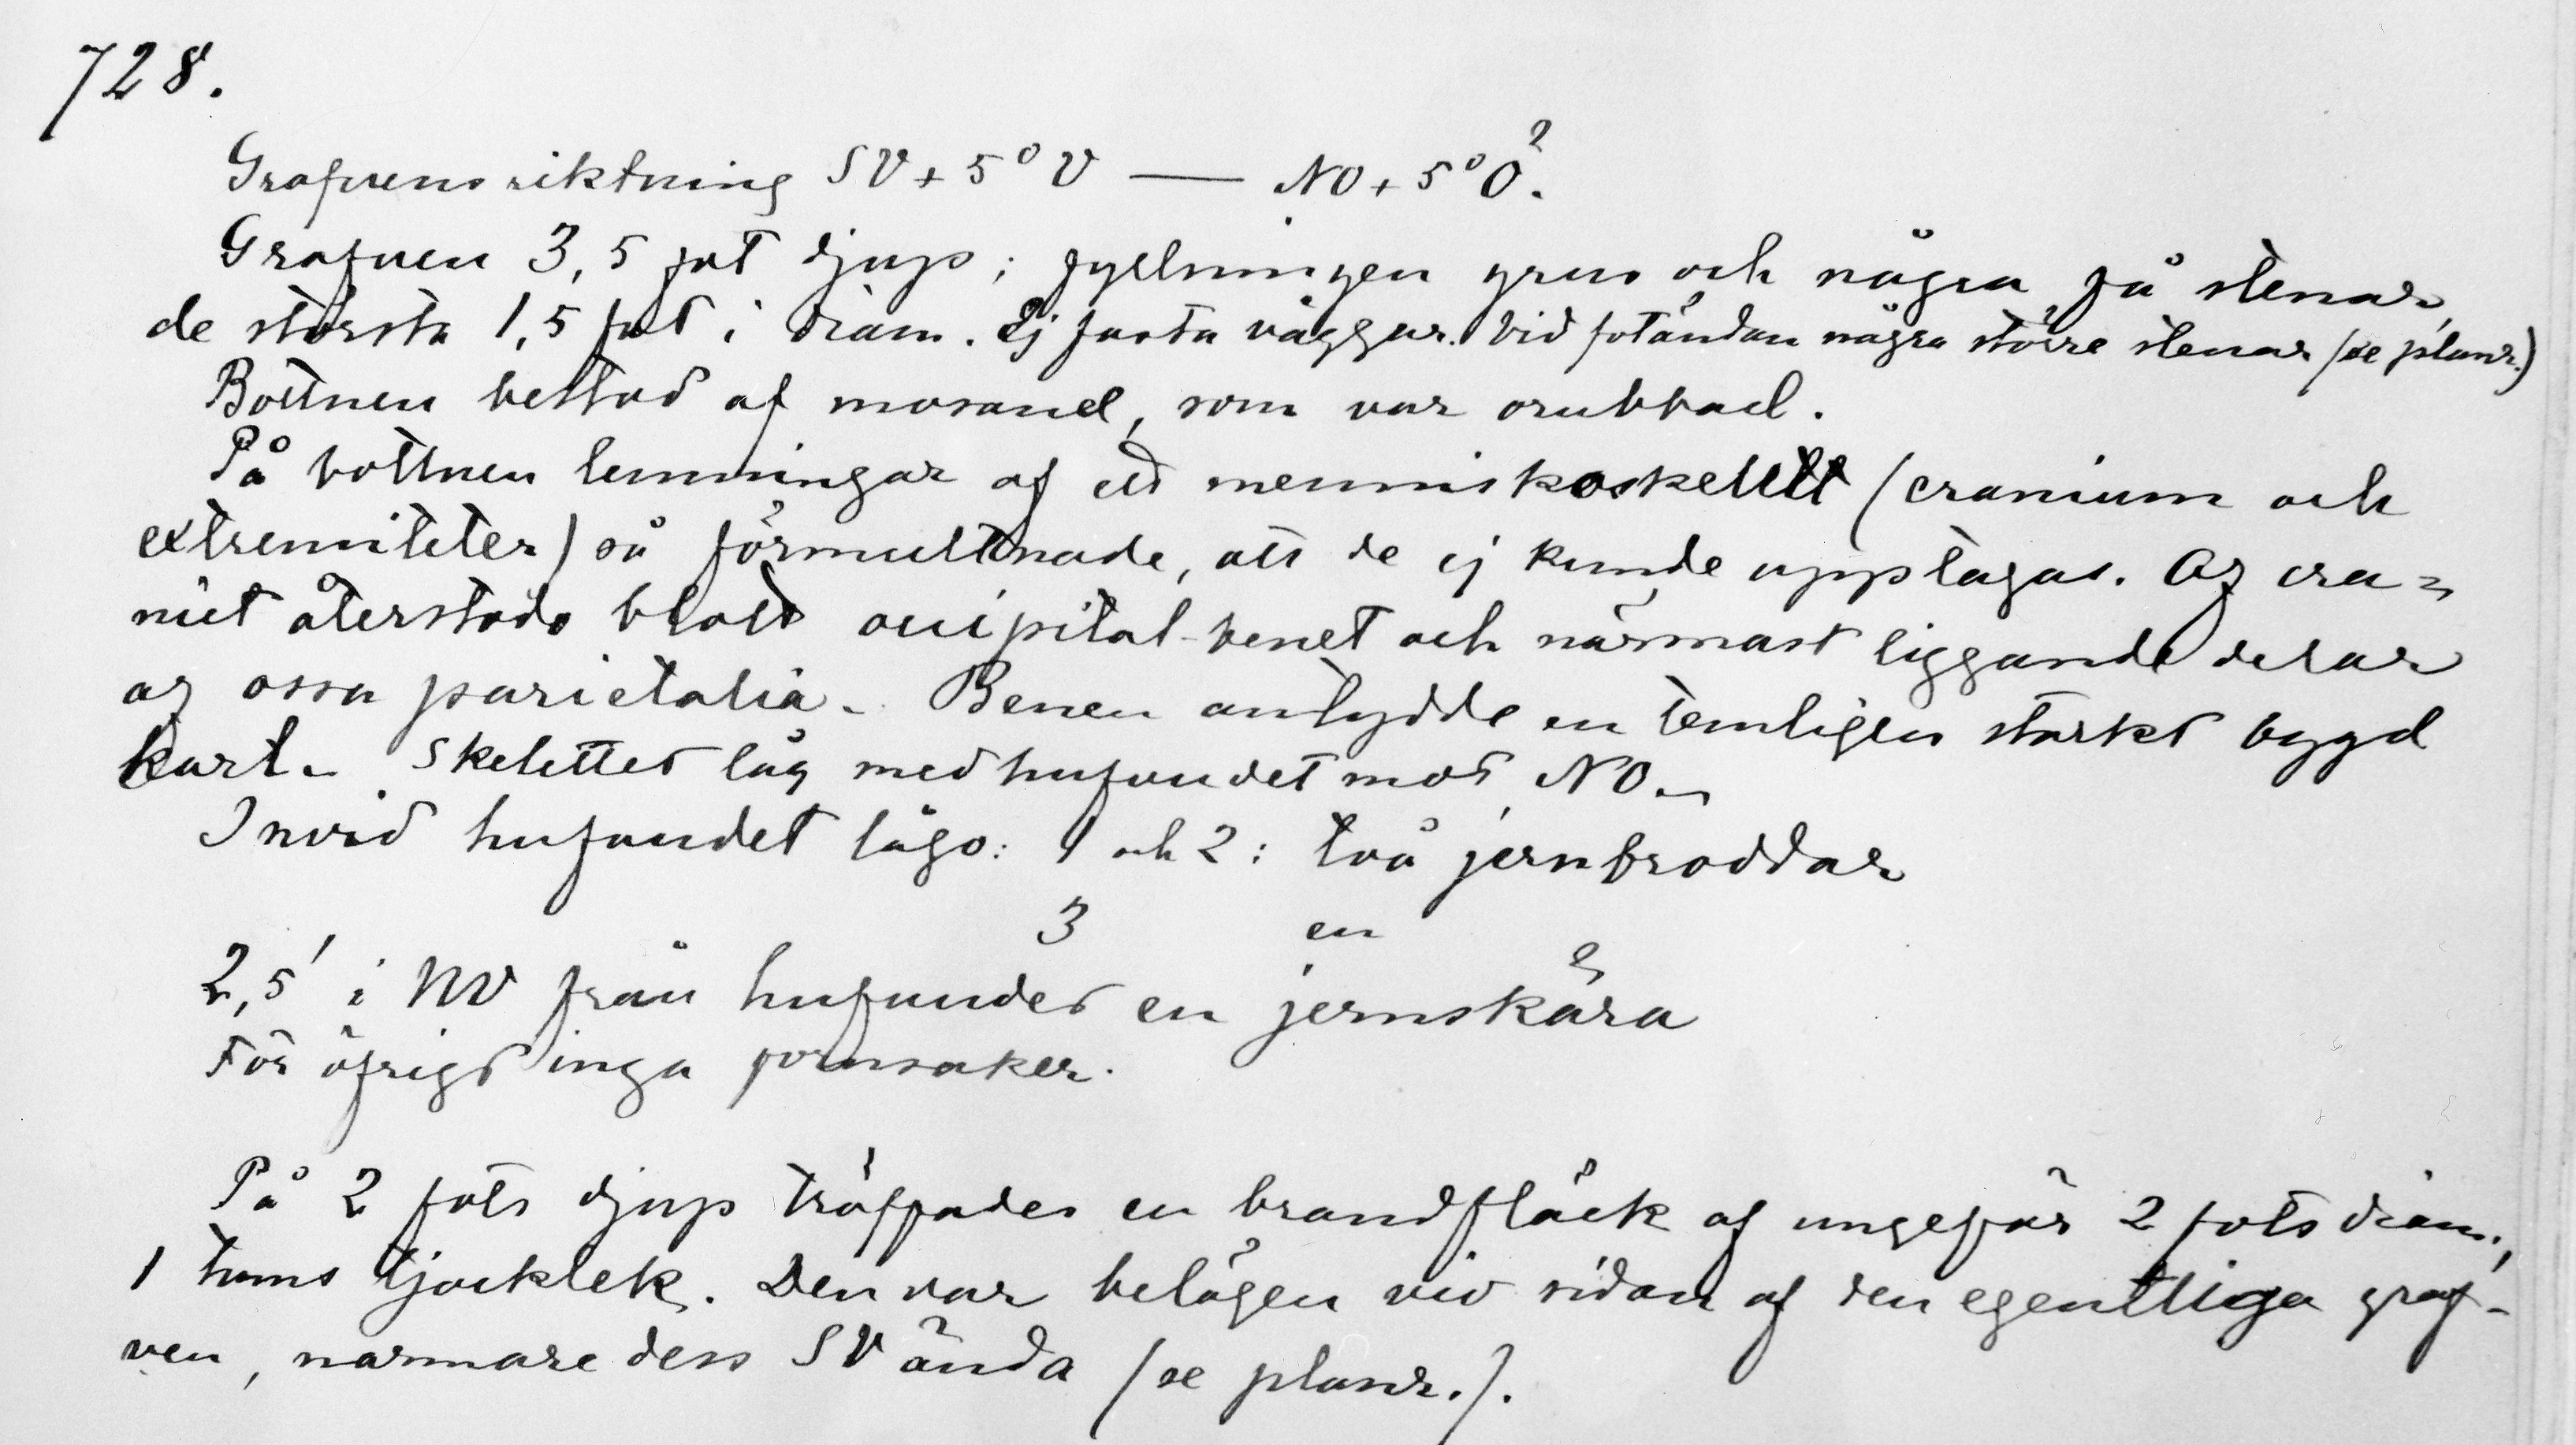 728.
Grafvens riktning SV + 5° V — NO + 5° O.?
Grafven 3,5 fot djup; fyllningen grus och några få stenar,
de största 1,5 fot i diam. Ej fasta väggar. Vid fotändan några större stenar (se planr.)
Bottnen bestod af mosand, som var orubbad.
På bottnen lemningar af ett menniskoskelett (cranium och
extremiteter) så förmultnade, att de ej kunde upptagas. Af cra=
niet återstodo blott occipital-benet och närmast liggande delar
af ossa parietalia. Benen antydde en temligen starkt bygd
karl. Skelettet låg med hufvudet mot NO.
Invid hufvudet lågo: 1 och 2: två jernbroddar
3 en
2,5' i NV från hufvudet en jernskära
För öfrigt inga fornsaker.
På 2 fots djup träffades en brandfläck af ungefär 2 fots diam.,
1 tums tjocklek. Den var belägen vid sidan af den egentliga graf-
ven, närmare dess SV ända (se planr.).